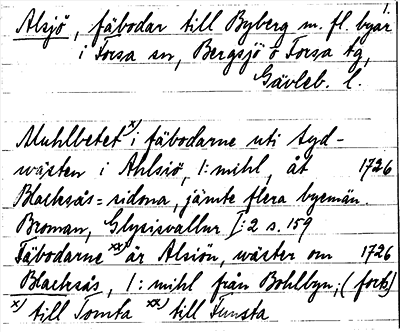 1.
Alsjö, fäbodar till Byberg m. fl. byar
i Forsa sn, Bergsjö o Forsa tg,
Gävleb. l.
Muhlbetet x) i fäbodarne uti syd-
wästen i Ahlsiö, 1: mihl, åt 1726
Blacksås=sidona, jämte flera byemän.
Broman, Glysisvallur I:2 s. 159
Fäbodarne xx) är Alsiön, wäster om 1726
Blacksås, 1: mihl från Bohlbyn; (forts)
x) till Tomta xx) till Funsta